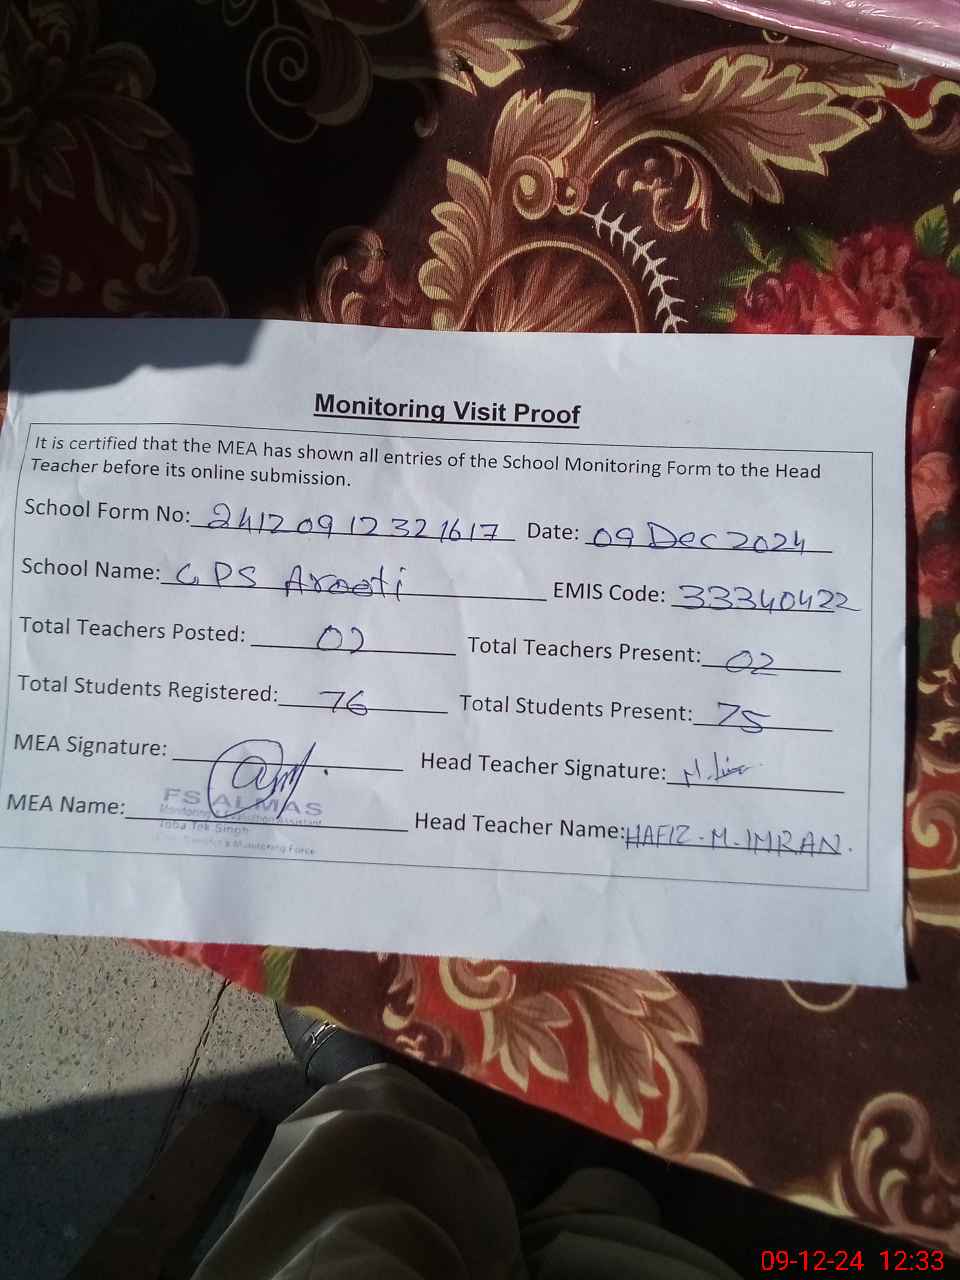 Monitoring Visit Proof
It is certified that the MEA has shown all entries of the School Monitoring Form to the Head
Teacher before its online submission.
School Form No: 24120912321617 Date: 09 Dec 2024
School Name: GPS Arooti EMIS Code: 33340422
Total Teachers Posted: 02 Total Teachers Present: 02
Total Students Registered: 76 Total Students Present: 75
MEA Signature: Head Teacher Signature:
MEA Name: FS ALMAS Head Teacher Name: HAFIZ.M.IMRAN.
Monitoring & Evaluation Assistant
Toba Tek Singh
Monitoring Force
09-12-24 12:33